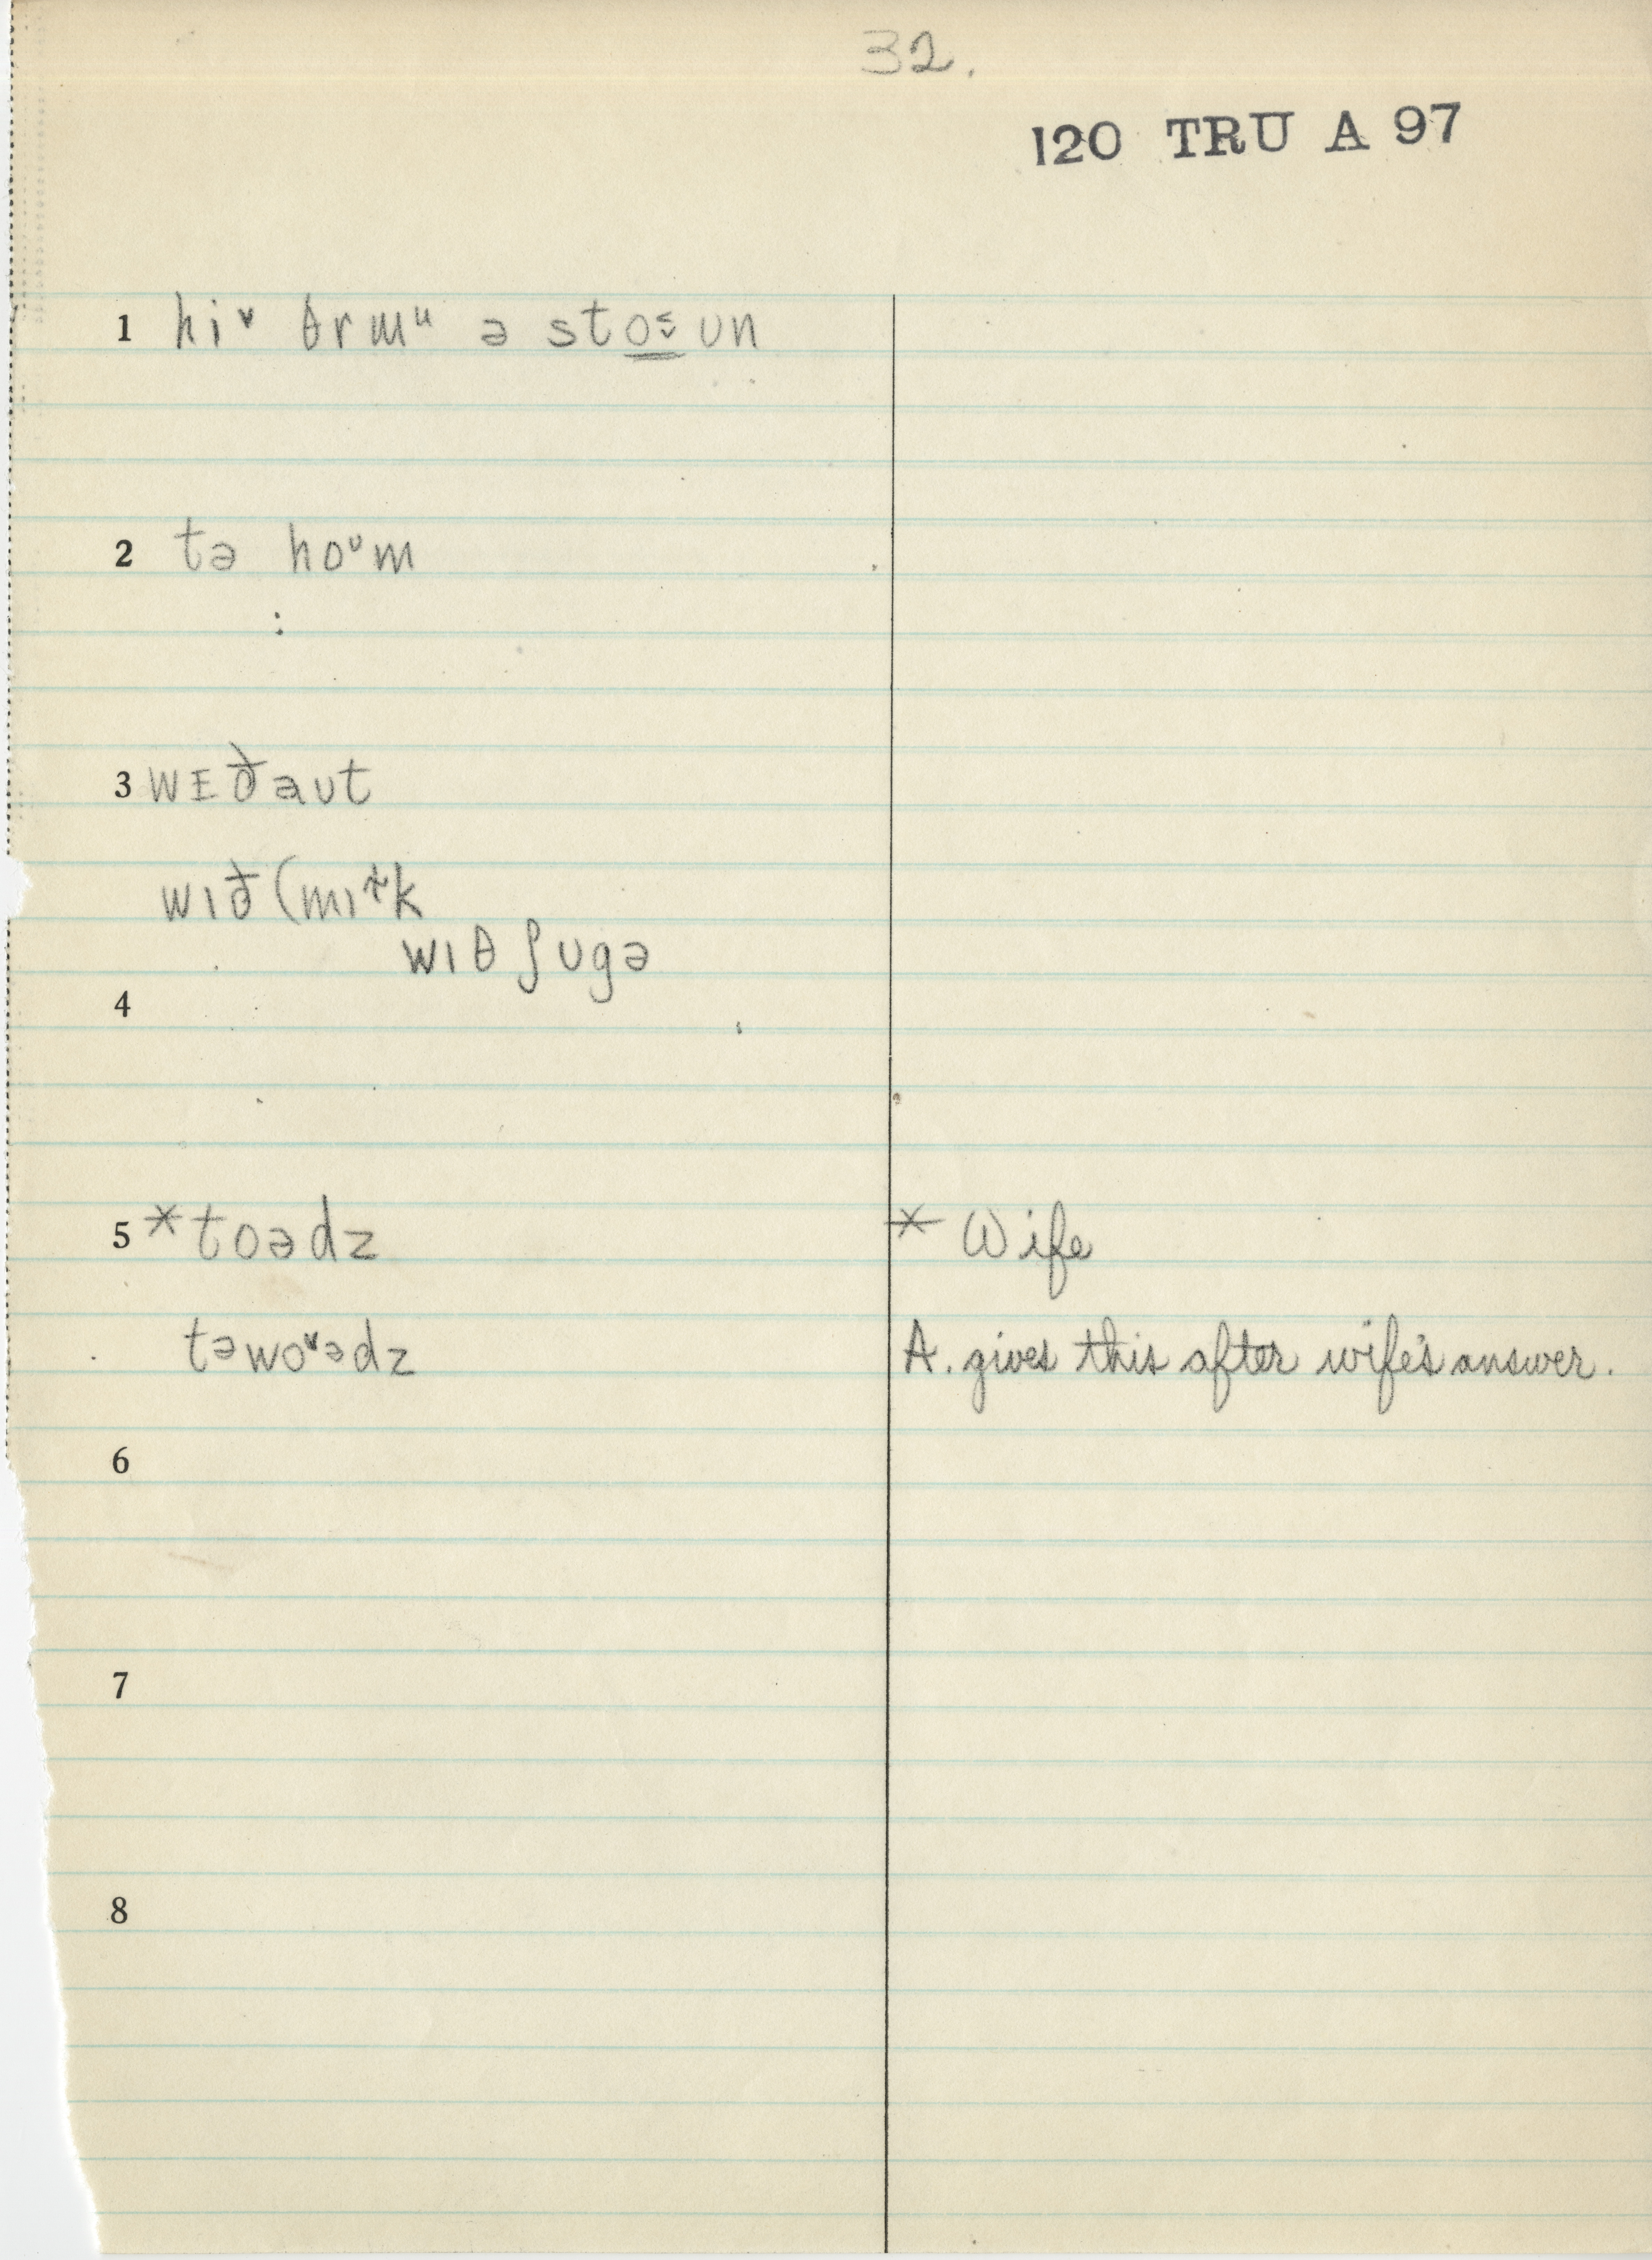 32.
120 TRU A 97
1 hiᵛ θrmᵘ ə sto̳ᵕ̄ un
2 tə hoᵛm
3 wɪðaut
wıð (mıɫk
wıθ ʃugə
4
5 *toədz * Wife
təwoᵛədz A. gives this after wife's answer.
6
7
8